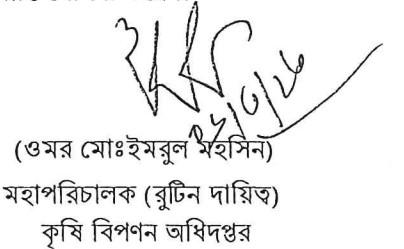 (ওমর মোঃইমরুল মহসিন)
মহাপরিচালক (রুটিন দায়িত্ব)
কৃষি বিপণন অধিদপ্তর